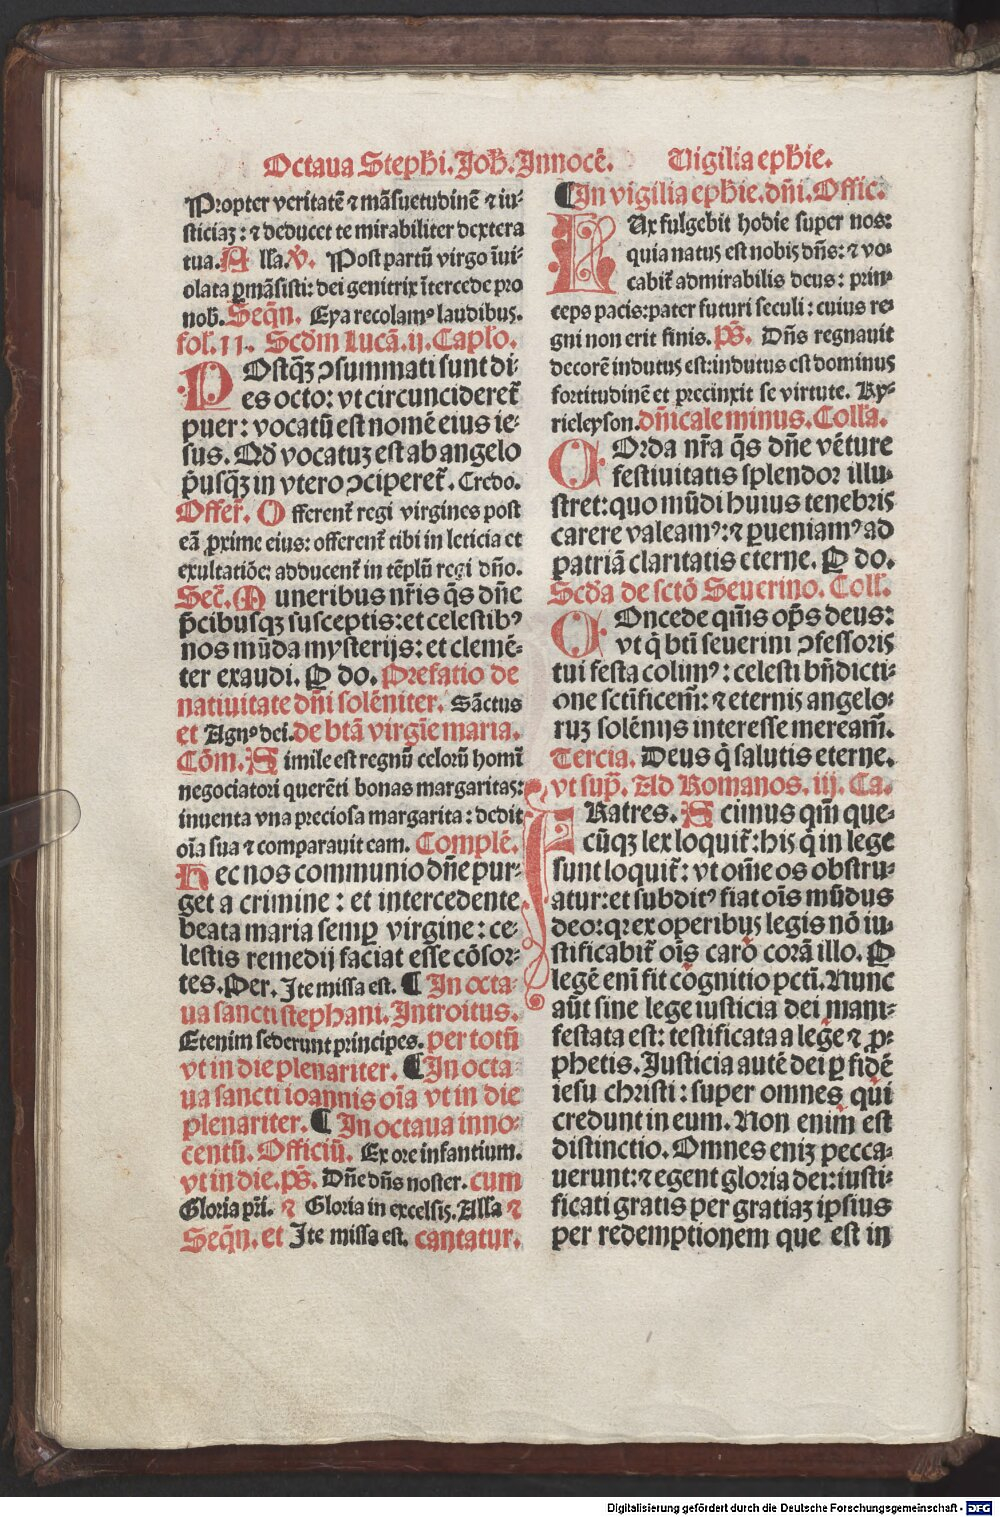 Octaua Stephi. Joh̄. Innocē. Uigilia ephie.
Propter veritatē ⁊ māsuetudinē ⁊ iu⸗
sticiaꝫ: ⁊ deducet te mirabiliter dextera
tua. Alla. ℣. Post partū virgo īui⸗
olata ꝑmāsisti: dei genitrix ītercede pro
nob̄. Seqn̄. Eya recolamꝰ laudibus.
fol. 11. Scd̄m Lucā. ij. Caplo.
POstq̄ꝫ ↄsummati sunt di⸗
es octo: vt circuncideret̄
puer: vocatū est nomē eius ie⸗
sus. Qd̄ vocatuꝫ est ab angelo
p̄usq̄ꝫ in vtero ↄciperet̄. Credo.
Offer̄. Offerent̄ regi virgines post
eā ꝓxime eius: offerent̄ tibi in leticia et
exultatiōe: adducent̄ in tēplū regi dn̄o.
Sec̄. Muneribus nr̄is q̄s dn̄e
p̄cibusqꝫ susceptis: et celestibꝰ
nos mūda mysterijs: et clemē⸗
ter exaudi. P do. Prefatio de
natiuitate dn̄i solēniter. Sāctus
et Agnꝰ dei. de btā virgīe maria.
Cōm. Simile est regnū celorū homī
negociatori querēti bonas margaritas:
inuenta vna preciosa margarita: dedit
oīa sua ⁊ comparauit eam. Complē.
Hec nos communio dn̄e pur⸗
get a crimine: et intercedente
beata maria semꝑ virgine: ce⸗
lestis remedij faciat esse cōsor⸗
tes. Per. Ite missa est. ¶ In octa⸗
ua sancti stephani. Introitus.
Etenim sederunt principes. per totū
vt in die plenariter. ¶ In octa⸗
ua sancti ioannis oīa vt in die
plenariter. ¶ In octaua inno⸗
centū. Officiū. Ex ore infantium.
vt in die. ps̄. Dn̄e dn̄s noster. cum
Gloria pr̄i. ⁊ Gloria in excelsis. Alla ⁊
Seqn̄. et Ite missa est. cantatur.
¶ In vigilia ephie. dn̄i. Offic.
LUx fulgebit hodie super nos:
quia natus est nobis dn̄s: ⁊ vo⸗
cabit̄ admirabilis deus: prin⸗
ceps pacis: pater futuri seculi: cuius re⸗
gni non erit finis. ps̄. Dn̄s regnauit
decorē indutus est: indutus est dominus
fortitudinē et precinxit se virtute. Ky⸗
rieleyson. dn̄icale minus. Colla.
COrda nr̄a q̄s dn̄e vēture
festiuitatis splendor illu⸗
stret: quo mūdi huius tenebris
carere valeamꝰ: ⁊ ꝑueniamꝰ ad
patriā claritatis eterne. P do.
Scd̄a de sctō Seuerino. Coll.
COncede qm̄s op̄s deus:
vt q̄ btī seuerini ↄfessoris
tui festa colimꝰ: celesti bn̄dicti⸗
one sctīficem̄: ⁊ eternis angelo⸗
ruꝫ solēnijs interesse meream̄.
Tercia. Deus q̄ salutis eterne.
vt sup̄. Ad Romanos. iij. Ca.
FRatres. Scimus qm̄ que⸗
cūqꝫ lex loquit̄: his q̄ in lege
sunt loquit̄: vt om̄e os obstru⸗
atur: et subditꝰ fiat oīs mūdus
deo: qꝛ ex operibus legis nō iu⸗
stificabit̄ oīs caro corā illo. P
legē enī fit cognitio pctī. Nunc
aūt sine lege iusticia dei mani⸗
festata est: testificata a lege ⁊ ꝓ⸗
phetis. Justicia autē dei ꝑ fidē
iesu christi: super omnes qui
credunt in eum. Non enim est
distinctio. Omnes eniꝫ pecca⸗
uerunt: ⁊ egent gloria dei: iusti⸗
ficati gratis per gratiaꝫ ipsius
per redemptionem que est in
Digitalisierung gefördert durch die Deutsche Forschungsgemeinschaft - DFG